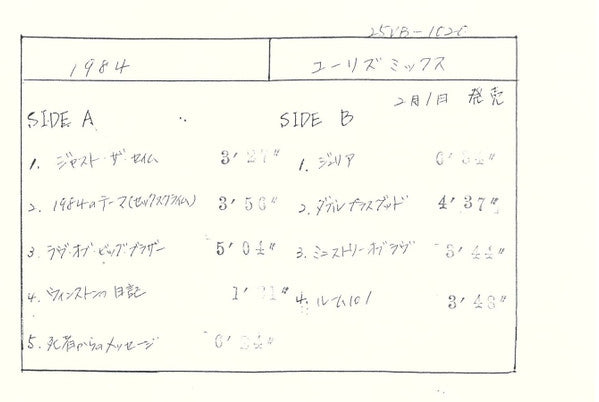 25VB-1026
1984 ユーリズミックス
2月1日 発売
SIDE A
1. ジャスト・ザ・セイム 3'27"
2. 1984のテーマ(セックスクライム) 3'56"
3. ラヴ・オブ・ビッグ・ブラザー 5'04"
4. ウィンストンの日記 1'21"
5. 死者からのメッセージ 6'24"
SIDE B
1. ジュリア 6'34"
2. ダブルプラスグッド 4'37"
3. ミニストリーオブラヴ 3'44"
4. ルーム101 3'48"